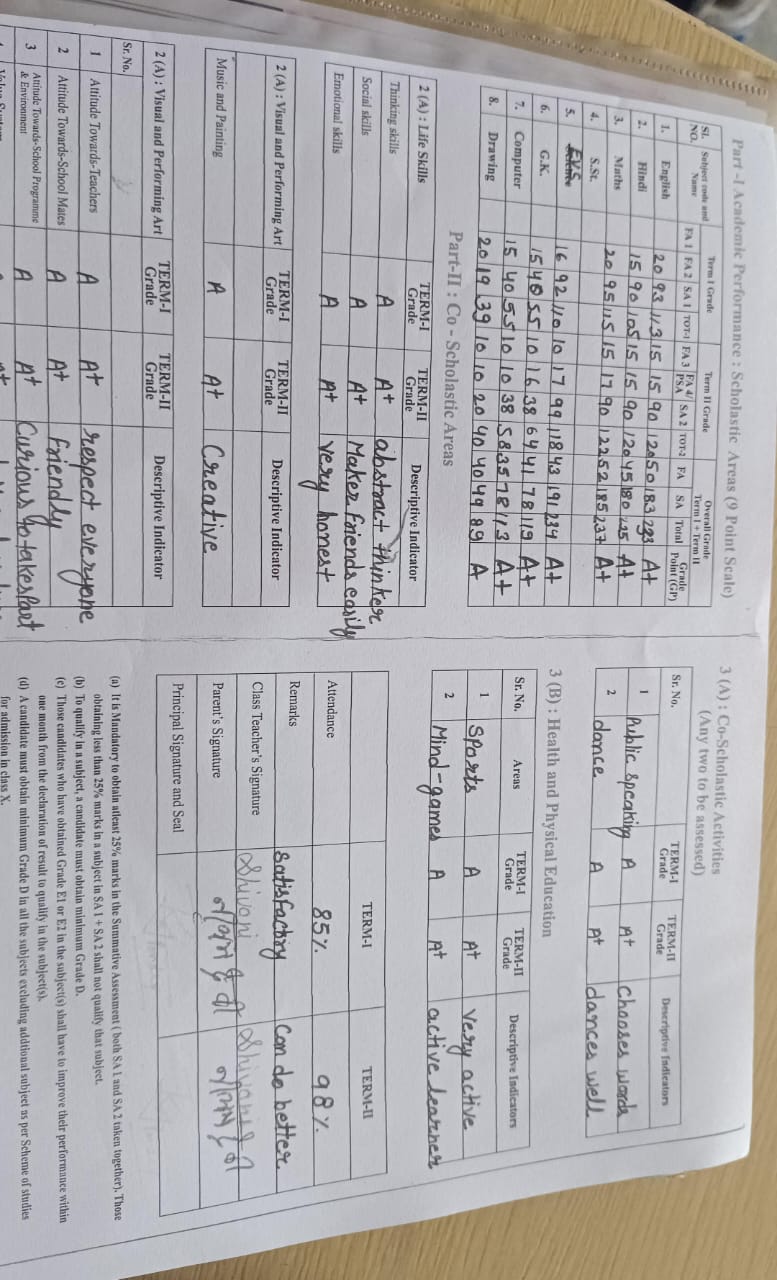 Part -I Academic Performance : Scholastic Areas (9 Point Scale)
Sl. NO. Subject code and Name Term I Grade Term II Grade Overall Grade Term I + Term II Grade Point (GP)
FA 1 FA 2 SA 1 TOT-1 FA 3 FA 4/ PSA SA 2 TOT-2 FA SA Total
1. English 20 93 113 15 15 90 120 50 183 A+
2. Hindi 15 90 105 15 15 90 120 45 180 225 A+
3. Maths 20 95 115 15 17 90 122 52 185 237 A+
4. S.St.
5. EVS 16 92 110 10 17 99 118 43 191 234 A+
6. G.K. 15 40 55 10 16 38 64 41 78 119 A+
7. Computer 15 40 55 10 10 38 58 35 78 113 A+
8. Drawing 20 19 39 10 10 20 40 40 49 89 A
Part-II : Co - Scholastic Areas
2 (A) : Life Skills TERM-I Grade TERM-II Grade Descriptive Indicator
Thinking skills A A+ abstract thinker
Social skills A A+ Makes friends easily
Emotional skills A A+ very honest
2 (A) : Visual and Performing Art TERM-I Grade TERM-II Grade Descriptive Indicator
Music and Painting A A+ Creative
2 (A) : Visual and Performing Art TERM-I Grade TERM-II Grade Descriptive Indicator
Sr. No.
1 Attitude Towards-Teachers A A+ respect everyone
2 Attitude Towards-School Mates A A+ friendly
3 Attitude Towards-School Programme & Environment A A+ Curious to takes part
3 (A) : Co-Scholastic Activities
(Any two to be assessed)
Sr. No. TERM-I Grade TERM-II Grade Descriptive Indicators
1 Public speaking A A+ Chooses words
2 dance A A+ dances well
3 (B) : Health and Physical Education
Sr. No. Areas TERM-I Grade TERM-II Grade Descriptive Indicators
1 Sports A A+ very active
2 Mind-games A A+ active learner
TERM-I TERM-II
Attendance 85%. 98%.
Remarks Satisfactory Can do better
Class Teacher's Signature Shivani Shivani
Parent's Signature
Principal Signature and Seal
(a) It is Mandatory to obtain atleast 25% marks in the Summative Assessment ( both SA 1 and SA 2 taken together). Those
obtaining less than 25% marks in a subject in SA 1 + SA 2 shall not qualify that subject.
(b) To qualify in a subject, a candidate must obtain minimum Grade D.
(c) Those candidates who have obtained Grade E1 or E2 in the subject(s) shall have to improve their performance within
one month from the declaration of result to qualify in the subject(s).
(d) A candidate must obtain minimum Grade D In all the subjects excluding additional subject as per Scheme of studies
for admission in class X.